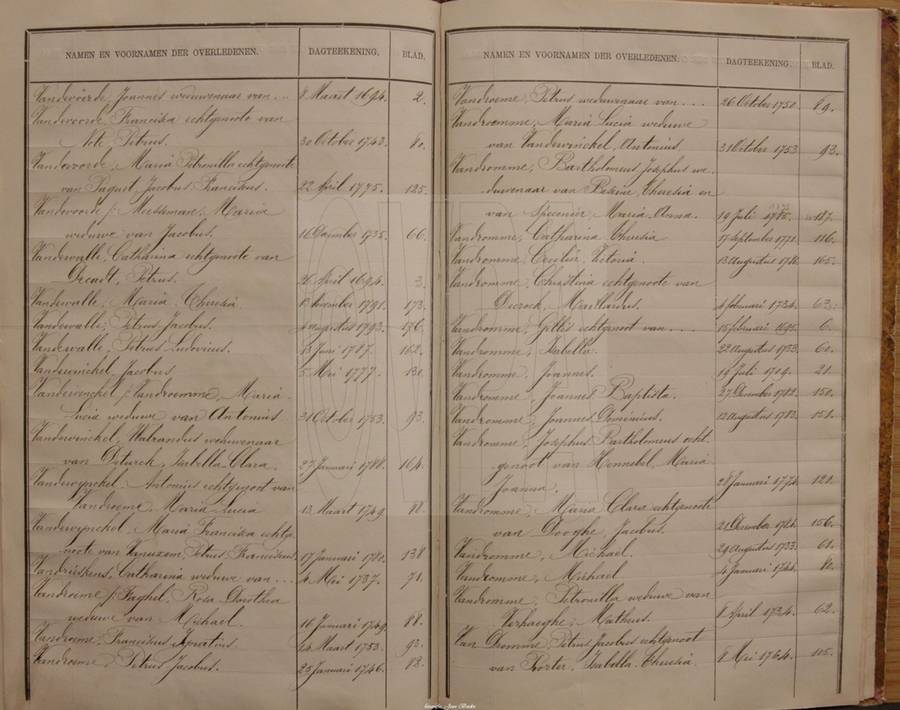 NAMEN EN VOORNAMEN DER OVERLEDENEN. DAGTEEKENING. BLAD.
Vandevoorde, Joannes weduwenaar van ... 8 Maart 1694. 2.
Vandevoorde, Franciska echtgenoote van
Note Petrus. 30 October 1743. 80.
Vandevoorde, Maria Petronilla echtgenoote
van Paquet, Jacobus Franciskus. 22 April 1775. 125.
Vandevoorde p/ Meesseman, Maria
weduwe van Jacobus. 16 December 1735. 66.
Vandewalle, Catharina echtgenoote van
Petrus. 26 April 1694. 3.
Vandewalle, Maria Theresia. November 1791. 173.
Vandewalle, Petrus Jacobus. 4 Augustus 1793. 176.
Vandewalle, Petrus Ludovicus. 13 Juni 1787. 162.
Vandewinckel, Jacobus 5 Mei 1777. 130.
Vandewinckel p/ Vandroemme, Maria
Lucia weduwe van Antonius 31 October 1753. 93.
Vandewinckel, Walrandus weduwenaar
van Deturck, Isabella Clara. 27 Januari 1788. 164.
Vandewynckel, Antonius echtgenoot van
Vandroeme, Maria Lucia 13 Maart 1749 88.
Vandewynckel, Maria Franciska echtge
noote van Vanuxem, Petrus Franciskus. 17 Januari 1780. 138
Vandrieskens, Catharina weduwe van ... 4 Mei 1737. 71.
Vandroeme p/ Paghel, Rosa Dorothea
weduwe van Michael. 16 Januari 1749. 88.
Vandroeme, Franciskus Ignatius. Maart 1753. 93.
Vandroeme, Petrus Jacobus. 25 Januari 1746. 83.
NAMEN EN VOORNAMEN DER OVERLEDENEN. DAGTEEKENING. BLAD.
Vandroeme, Petrus weduwenaar van ... 26 October 1750. 89.
Vandroemme, Maria Lucia weduwe
van Vandewinckel, Antonius. 31 October 1753 93.
Vandromme, Bartholomeus Josephus we
duwenaar van Theresia en
van Specenier, Maria Anna. 19 Juli 157.
Vandromme, Catharina Theresia 17 September 1771. 116.
Vandromme, Cecilia Victoria. 13 Augustus 1788. 165.
Vandromme, Christina echtgenoote van
Meillardus. 4 Februari 1734. 63.
Vandromme, Gilles echtgenoot van ... 15 Februari 1695. 6.
Vandromme, Isabella. 22 Augustus 1733. 60.
Vandromme, Joannes. 19 Juli 1709. 21.
Vandromme, Joannes Baptista. 27 December 1782. 150.
Vandromme, Joannes Dominicus. 12 Augustus 1783. 151.
Vandromme, Josephus Bartholomeus echt
genoot van Hennebel, Maria
Joanna. 28 Januari 1774. 121.
Vandromme, Maria Clara echtgenoote
van Dooghe, Jacobus. 21 December 156.
Vandromme, Michael. 29 Augustus 1733. 61.
Vandromme, Michael 4 Januari 1744. 80.
Vandromme, Petronilla weduwe van
Verhaeghe, Matheus. 8 April 1734. 62.
Van Dromme, Petrus Jacobus echtgenoot
van Porter, Isabella Theresia. 8 Mei 1764. 105.